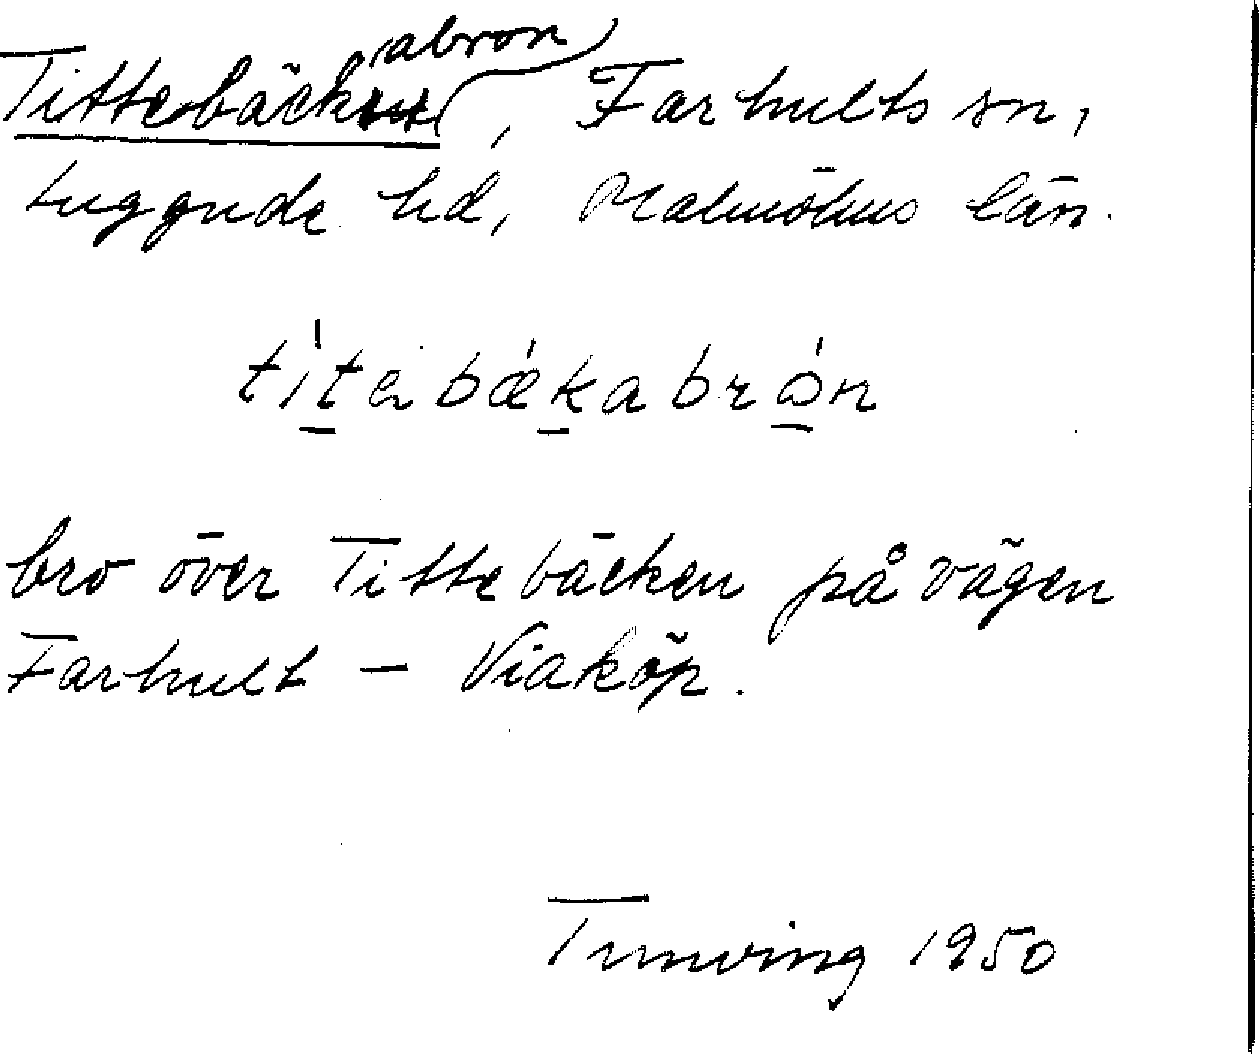 Tittebäckabron, Farhults sn,
Luggude hd, Malmöhus län.
tìtebǽkabrón
bro över Tittebäcken på vägen
Farhult – Viaköp.
Tunving 1950